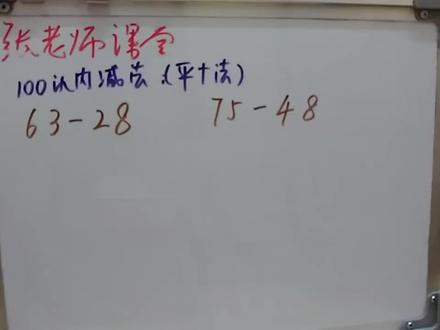 张老师课堂
100以内减法(平十法)
63-28 75-48